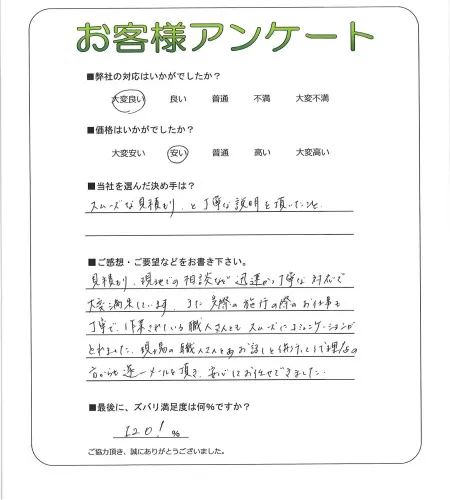 お客様アンケート
■弊社の対応はいかがでしたか?
大変良い 良い 普通 不満 大変不満
■価格はいかがでしたか?
大変安い 安い 普通 高い 大変高い
■当社を選んだ決め手は?
スムーズな見積もり、と丁寧な説明を頂いたこと
■ご感想・ご要望などをお書き下さい。
見積もり、現地での相談など迅速かつ丁寧な対応で
大変満足しています。また実際の施行の際のお仕事も
丁寧で、作業されている職人さんともスムーズにコミュニケーションが
とれました。現場の職人さんとのお話しと併行して
方からも逐一メールを頂き、安心してお任せできました。
■最後に、ズバリ満足度は何%ですか?
120! %
ご協力頂き、誠にありがとうございました。